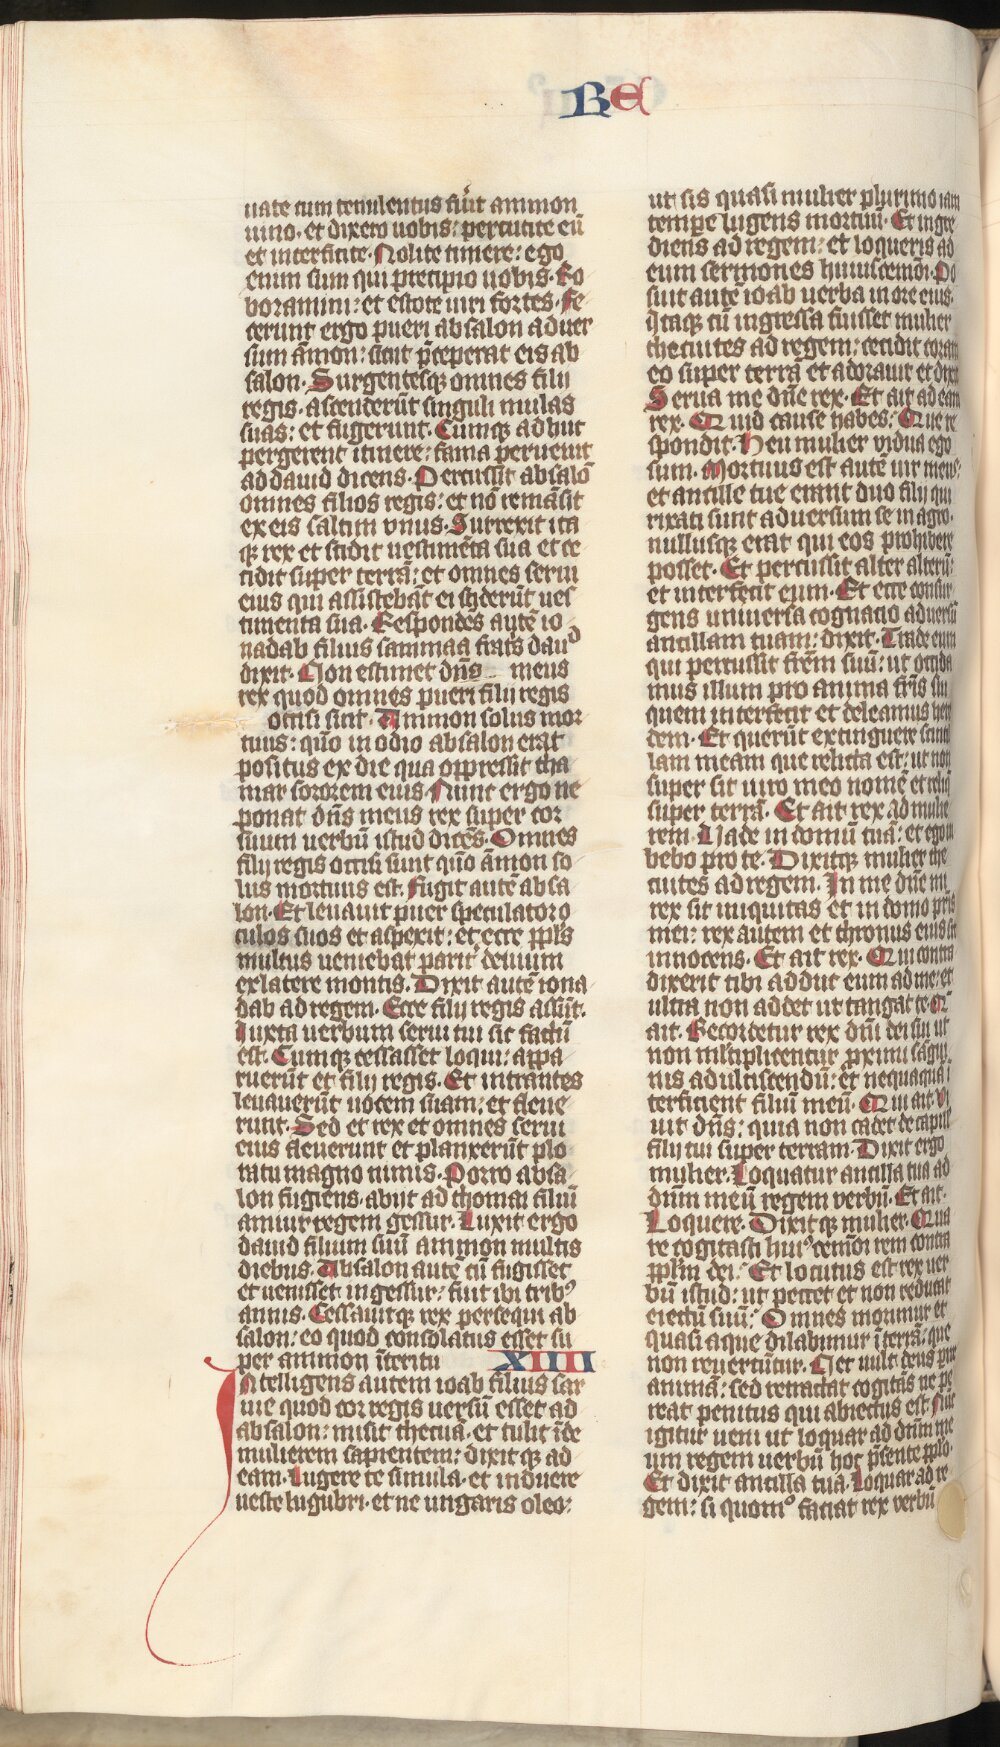 RE
uate cum temulentus fuit ammon
uino. et dixero uobis: percutite eū
et interficite. Nolite timere: ego
enim sum qui precipio uobis. Ro
boramini: et estote uiri fortes. Fe
cerunt ergo pueri absalon aduer
sum āmon: sicut p̄ceperat eis ab
salon. Surgentesqꝫ omnes filij
regis. ascenderūt singuli mulas
suas: et fugerunt. Cumqꝫ adhuc
pergerent itinere: fama peruenit
ad dauid dicens. Percussit absalō
omnes filios regis: et nō remāsit
ex eis saltim vnus. Surrexit ita
qꝫ rex et scidit uestimēta sua et ce
cidit super terrā: et omnes serui
eius qui assistebāt ei sciderūt ues
timenta sua. Respondēs autē io
nadab filius sammaa fratris dauid
dixit. Non estimet dn̄s meus
rex quod omnes pueri filij regis
occisi sint. Ammon solus mor
tuus: qūo in odio absalon erat
positus ex die qua oppressit tha
mar sororem eius. Nunc ergo ne
ponat dn̄s meus rex super cor
suum uerbū istud dicēs. Omnes
filij regis occisi sunt qūo āmon so
lus mortuus est. Fugit autē absa
lon. Et leuauit puer speculator o
culos suos et aspexit: et ecce ppl̄s
multus ueniebat per iter deuium
ex latere montis. Dixit autē iona
dab ad regem. Ecce filij regis assūt.
Iuxta uerbum serui tui sic factū
est. Cumqꝫ cessasset loqui: appa
ruerūt et filij regis. Et intrantes
leuauerūt uocem suam: et fleue
runt. Sed et rex et omnes serui
eius fleuerunt et planxerūt plo
ratu magno nimis. Porro absa
lon fugiens. abijt ad thomai filiū
amiur regem gessur. Luxit ergo
dauid filium suū ammon multis
diebus. Absalon autē cū fugisset
et uenisset in gessur: fuit ibi tribꝰ
annis. Cessauitqꝫ rex persequi ab
salon: eo quod consolatus esset su
per ammon īteritu XIIII
Intelligens autem ioab filius sar
uie quod cor regis uersū esset ad
absalon: misit thecua. et tulit īde
mulierem sapientem: dixitqꝫ ad
eam. Lugere te simula. et induere
ueste lugubri. et ne ungaris oleo:
ut sis quasi mulier plurimo iam
tempe lugens mortuū. Et ingre
diens ad regem: et loqueris ad
eum sermones huiuscemōi. Po
suit autē ioab uerba in ore eius.
Itaqꝫ cū ingressa fuisset mulier
thecuites ad regem: cecidit coram
eo super terrā et adorauit et dixit
Serua me dn̄e rex. Et ait ad eam
rex. Quid cause habes: Que re
spondit. Heu mulier vidua ego
sum. Mortuus est autē uir meus:
et ancille tue erant duo filij qui
rixati sunt aduersum se in agro.
nullusqꝫ erat qui eos prohibere
posset. Et percussit alter alterū:
et interfecit eum. Et ecce consur
gens uniuersa cognatio aduersū
ancillam tuam: dixit. Trade eum
qui percussit fr̄em suū: ut occida
mus illum pro anima fr̄is sui
quem interfecit et deleamus here
dem. Et querūt extinguere scintil
lam meam que relicta est: ut non
super sit uiro meo nomē et reliq̄
super terrā. Et ait rex ad mulie
rem. Vade in domū tuā: et ego iu
bebo pro te. Dixitqꝫ mulier the
cuites ad regem. In me dn̄e mi
rex sit iniquitas et in domo pr̄is
mei: rex autem et thronus eius sit
innocens. Et ait rex. Qui contra
dixerit tibi adduc eum ad me: et
ultra non addet ut tangat te. Q̄
ait. Recordetur rex dn̄i dei sui ut
non ml̄tiplicentur pximi sagui
nis ad ulciscendū: et nequaquā ī
terficient filiū meū. Qui ait. Vi
uit dn̄s: quia non cadet de capill
filij tui super terram. Dixit ergo
mulier. Loquatur ancilla tua ad
dn̄m meū regem verbū. Et ait.
Loquere. Dixitqꝫ mulier. Qua
re cogitasti huiꝰcemōi rem contra
ppl̄m dei: Et locutus est rex uer
bū istud: ut peccet et non reducat
eiectū suū: Omnes morimur et
quasi aque dilabimur ī terrā: que
non reuertūtur. Nec uult deus pire
animā: sed retractat cogitās ne pe
reat penitus qui abiectus est. Nūc
igitur ueni ut loquar ad dn̄m me
um regem uerbū hoc p̄sente pplo.
Et dixit ancilla tua. Loquar ad re
gem: si quomº faciat rex verbū